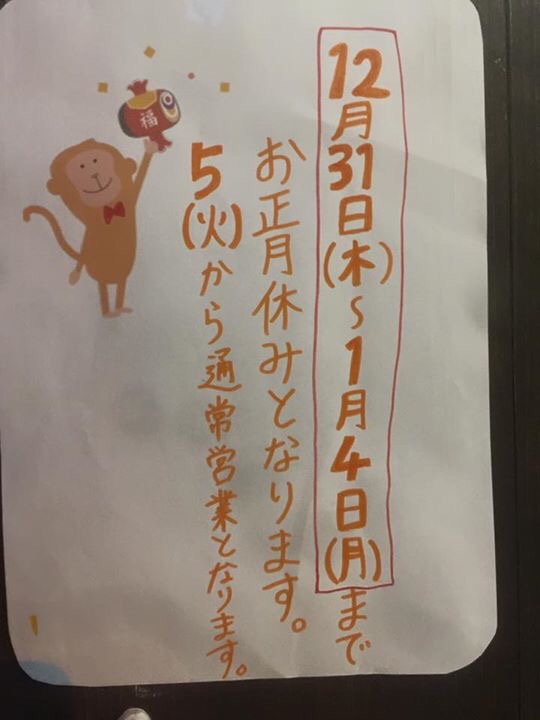 12月31日(木)～1月4日(月)まで
お正月休みとなります。
5(火)から通常営業となります。
福